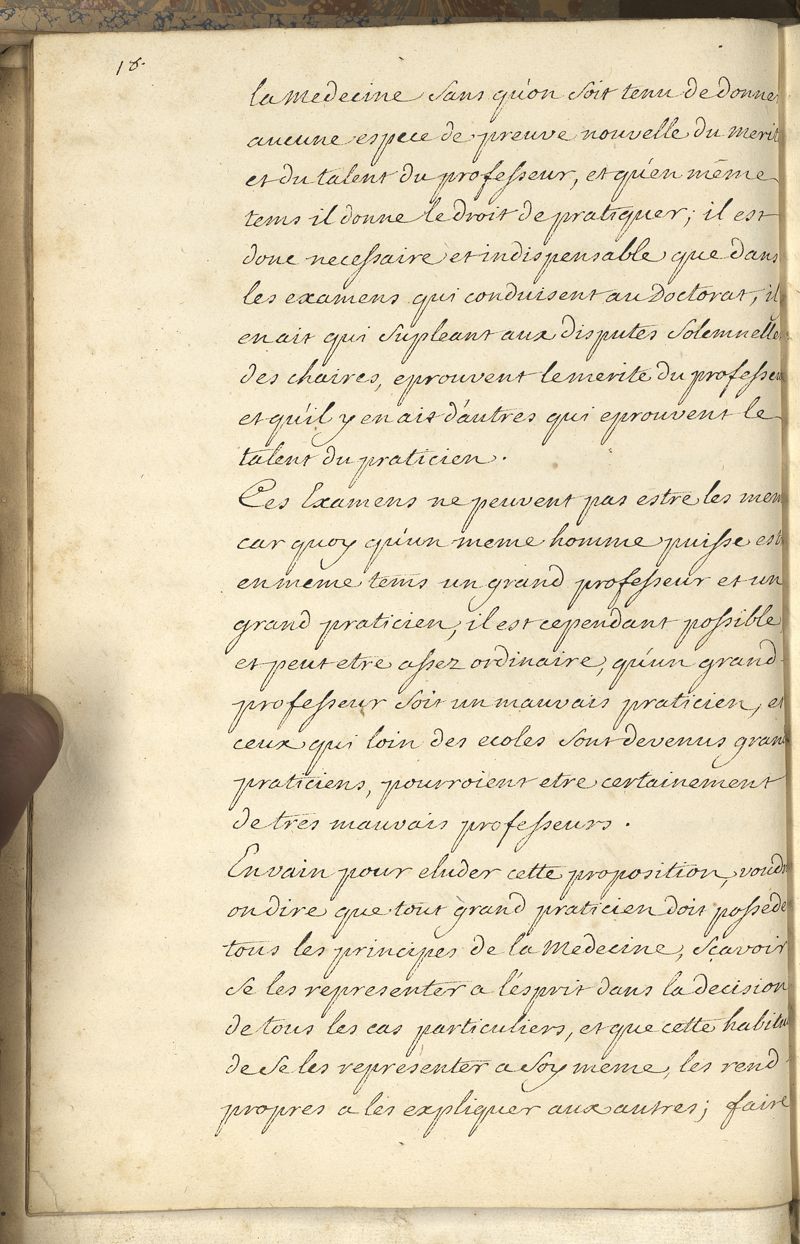 18.
la Medecine sans qu'on soit tenu de donner
aucune espece de preuve nouvelle du merit
et du talent du professeur, et qu'en même
tems il donne le droit de pratiquer; il est
donc necessaire et indispensable que dans
les examens qui conduisent au Doctorat, il
en ait qui supleant aux disputes solemnelle
des chaires, eprouvent le merite du professeu
et qu'il y en ait d'autres qui eprouvent le
talent du praticien.
Ces Examens ne peuvent pas estre les mem
car quoy qu'un meme homme puisse est
en meme tems un grand professeur et un
grand praticien, il est cependant possible,
et peut etre assez ordinaire, qu'un grand
professeur soit un mauvais praticien, et
ceux qui loin des ecoles sont devenus gran
praticiens, pourroient etre certainement
de tres mauvais professeurs.
Envain pour eluder cette proposition, voudr
on dire que tout grand praticien doit posséde
tous les principes de la Medecine, sçavoir
se les representer a l'esprit dans la decision
de tous les cas particuliers, et que cette habitu
de se les representer a soy meme, les rend
propres a les expliquer aux autres; faire